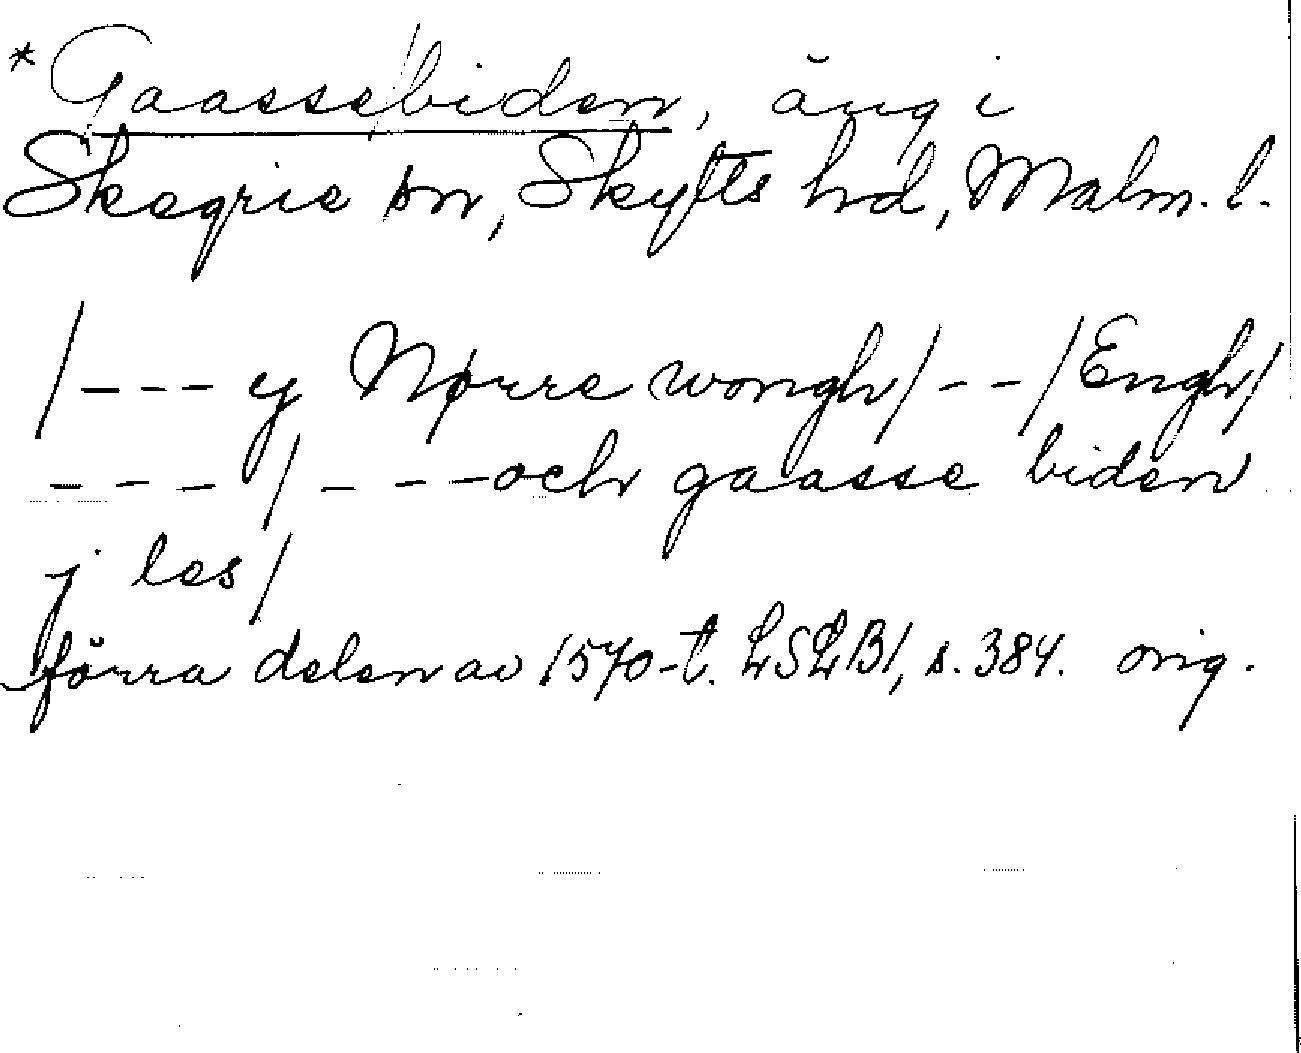 *Gaasse/biden, äng i
Skegrie sn, Skytts hd, Malm. l.
/--- y Nørre wongh/--/Engh/
---/---och gaasse biden
j les/
förra delen av 1570-t. LSLB1, s. 384. orig.